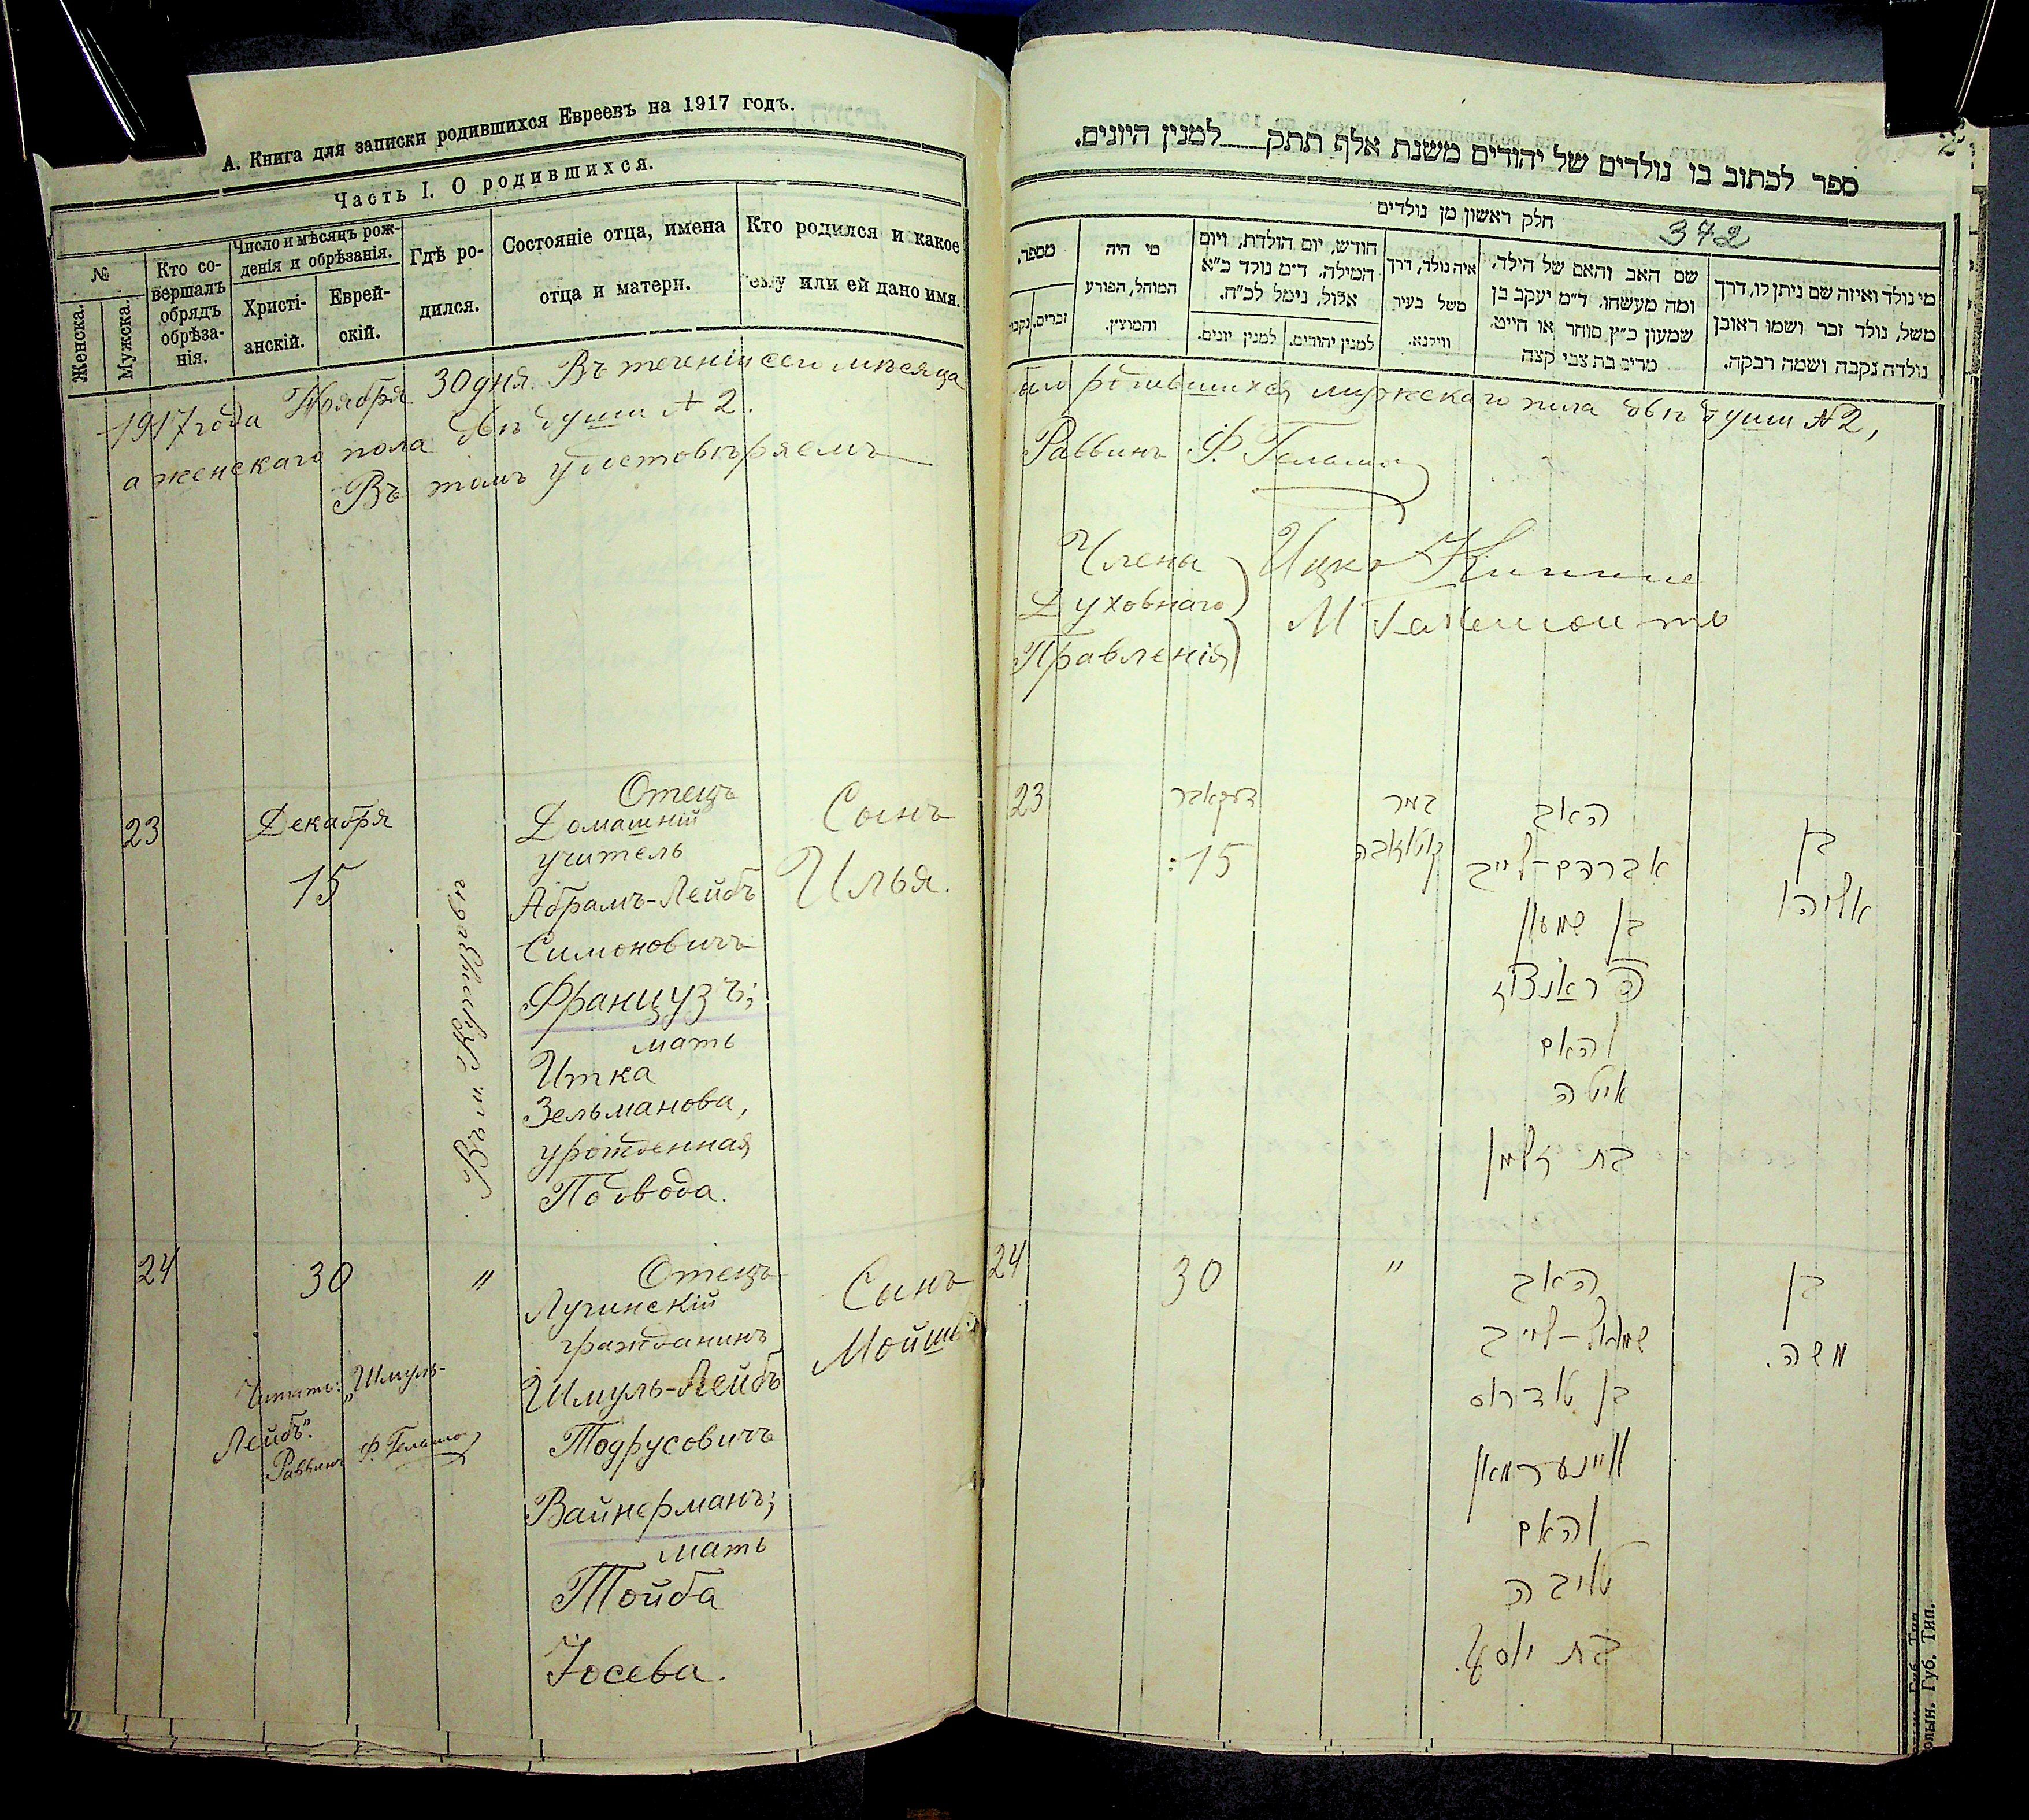 А. Книга для записки родившихся Евреевъ на 1917 годъ.
Часть I. О родившихся.
№
Женска.
Мужска.
Кто со-
вершалъ
обрядъ
обрѣза-
нія.
Число и мѣсяцъ рож-
денія и обрѣзанія.
Христі-
анскій.
Еврей-
скій.
Гдѣ ро-
дился.
Состояніе отца, имена
отца и матери.
Кто родился и какое
ему или ей дано имя.
1917 года Ноября 30 дня. Въ теченіи сего мѣсяца
а женскаго пола двѣ души № 2.
Въ томъ удостовѣряемъ
23
Декабря
15
Отецъ
Домашній
учитель
Абрамъ-Лейбъ
Симоновичъ
Французъ;
мать
Итка
Зельманова,
урожденная
Подвода.
Сынъ
Илья.
24
30
"
Отецъ
Лугинскій
гражданинъ
Шмуль-Лейбъ
Тодрусовичъ
Вайнерманъ;
мать
Тойба
Іосева.
Сынъ
Мойше
Читать: „Шмуль-
Лейбъ".
Раввинъ
ספר לכתוב בו נולדים של יהודים משנת אלף תתק למנין היונים.
חלק ראשון מן נולדים
342
מספר.
זכרים.
נקבו
מי היה
המוהל, הפורע
והמוצץ.
חודש, יום הולדת, ויום
המילה. ד״מ נולד כ״א
אלול, נימל לכ״ח.
למנין יונים.
למנין יהודים.
איה נולד, דרך
משל בעיר
ווילנא.
שם האב והאם של הילד.
ומה מעשהו. ד״מ יעקב בן
שמעון כ״ץ סוחר או חייט.
מרים בת צבי קצה
מי נולד ואיזה שם ניתן לו, דרך
משל, נולד זכר ושמו ראובן
נולדה נקבה ושמה רבקה.
было родившихся мужскаго пола двѣ души № 2,
Раввинъ
Члены
Духовнаго
Правленія
Ицко
23
דעקאבר
15
במר
האב
אברהם-לייב
בן שמעון
פראנצוז
והאם
איטה
בת זלמן
בן
אליהו
24
30
"
האב
שמואל-לייב
בן טודרוס
ווינערמאן
והאם
טויבה
בת יוסף.
בן
משה.
Губ. Тип.